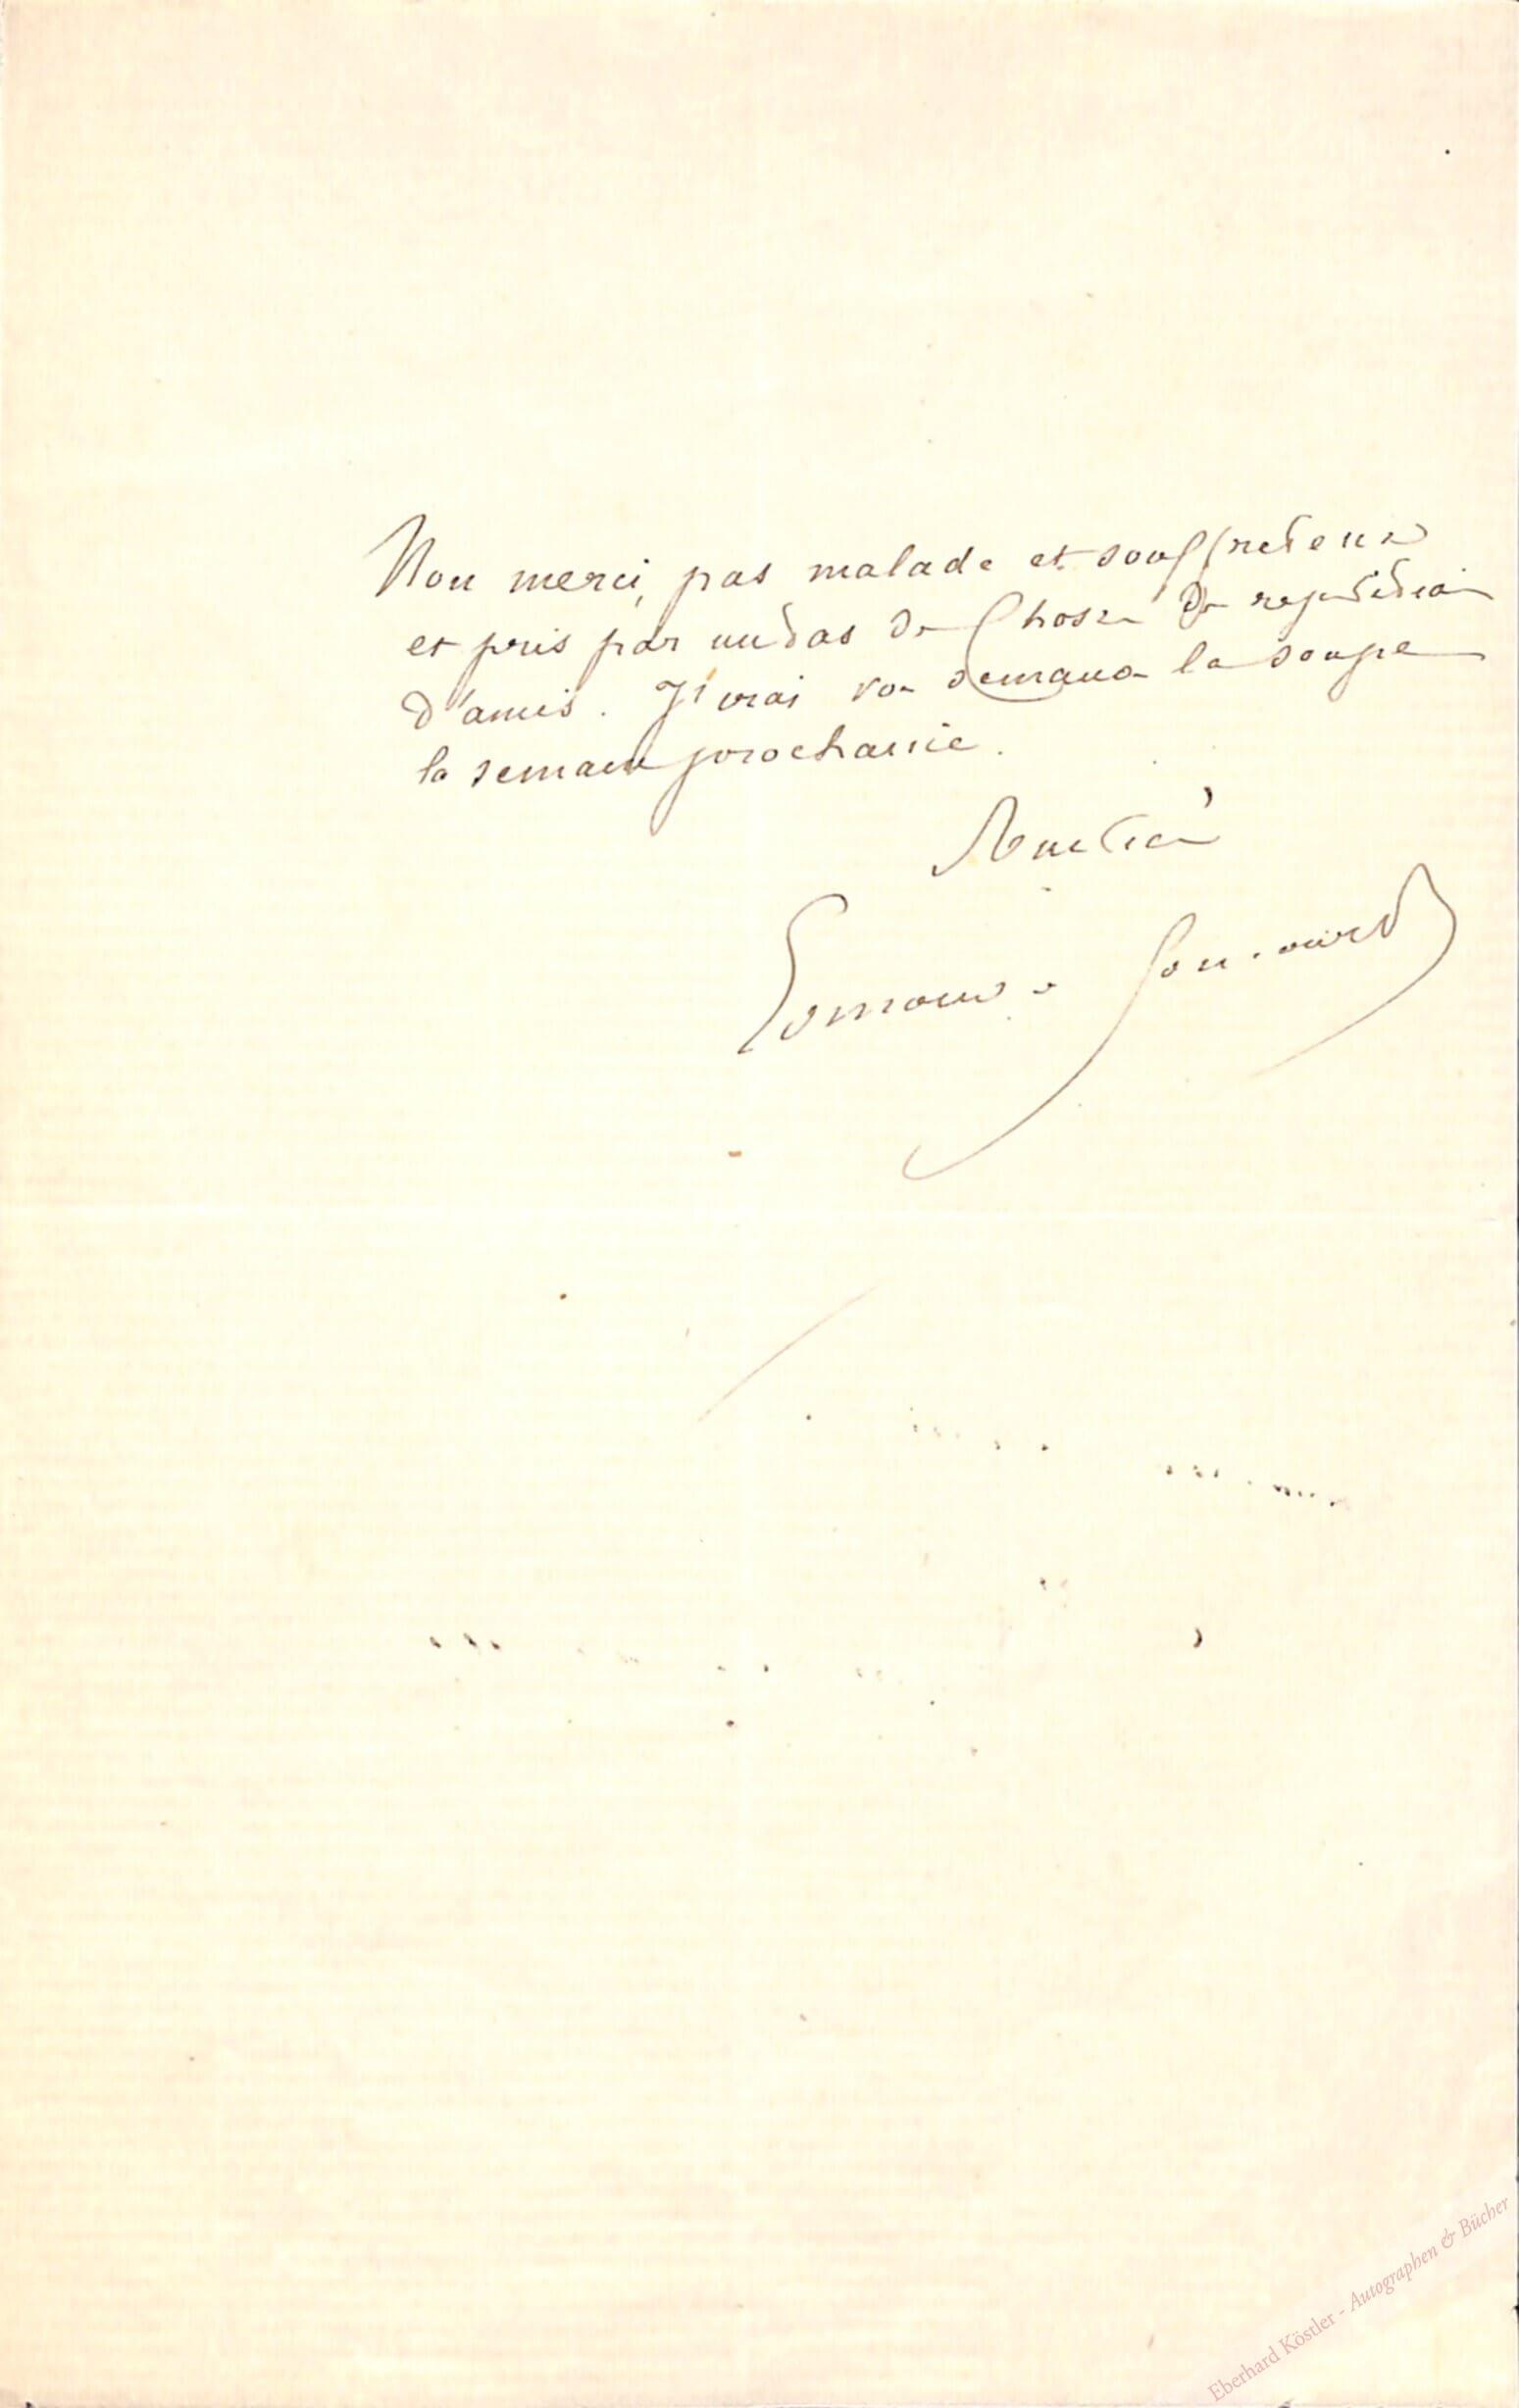 Non merci, pas malade et souffreteux
et pris par un tas de choses de répétition
d'amis. J'irai vous demander la soupe
la semaine prochaine.
Amitiés
Edmond de Goncourt
Eberhard Köstler - Autographen & Bücher